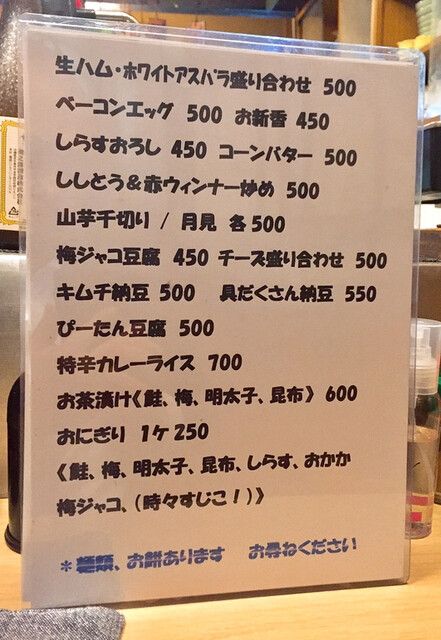 生ハム・ホワイトアスパラ盛り合わせ 500
ベーコンエッグ 500 お新香 450
しらすおろし 450 コーンバター 500
ししとう&赤ウィンナー炒め 500
山芋千切り / 月見 各500
梅ジャコ豆腐 450 チーズ盛り合わせ 500
キムチ納豆 500 具だくさん納豆 550
ぴーたん豆腐 500
特辛カレーライス 700
お茶漬け《鮭、梅、明太子、昆布》 600
おにぎり 1ケ250
《鮭、梅、明太子、昆布、しらす、おかか
梅ジャコ、(時々すじこ!)》
*麺類、お餅あります お尋ねください